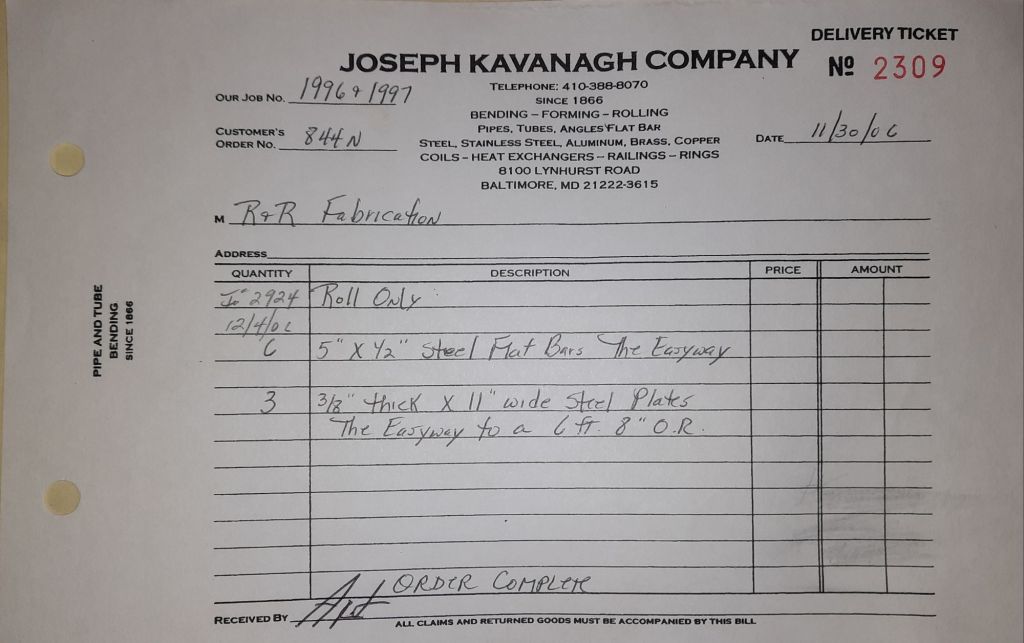 DELIVERY TICKET
JOSEPH KAVANAGH COMPANY
Nº 2309
TELEPHONE: 410-388-8070
OUR JOB NO. 1996 & 1997
SINCE 1866
BENDING – FORMING – ROLLING
PIPES, TUBES, ANGLES FLAT BAR
CUSTOMER'S ORDER NO. 844N
STEEL, STAINLESS STEEL, ALUMINUM, BRASS, COPPER
DATE 11/30/06
COILS – HEAT EXCHANGERS – RAILINGS – RINGS
8100 LYNHURST ROAD
BALTIMORE, MD 21222-3615
M R&R Fabrication
ADDRESS
QUANTITY DESCRIPTION PRICE AMOUNT
2924 Roll Only
12/4/06
6 5" X 1/2" Steel Flat Bars The Easyway
3 3/8" thick X 11" wide Steel Plates
The Easyway to a 6 ft. 8" O.R.
ORDER COMPLETE
RECEIVED BY
ALL CLAIMS AND RETURNED GOODS MUST BE ACCOMPANIED BY THIS BILL
PIPE AND TUBE
BENDING
SINCE 1866